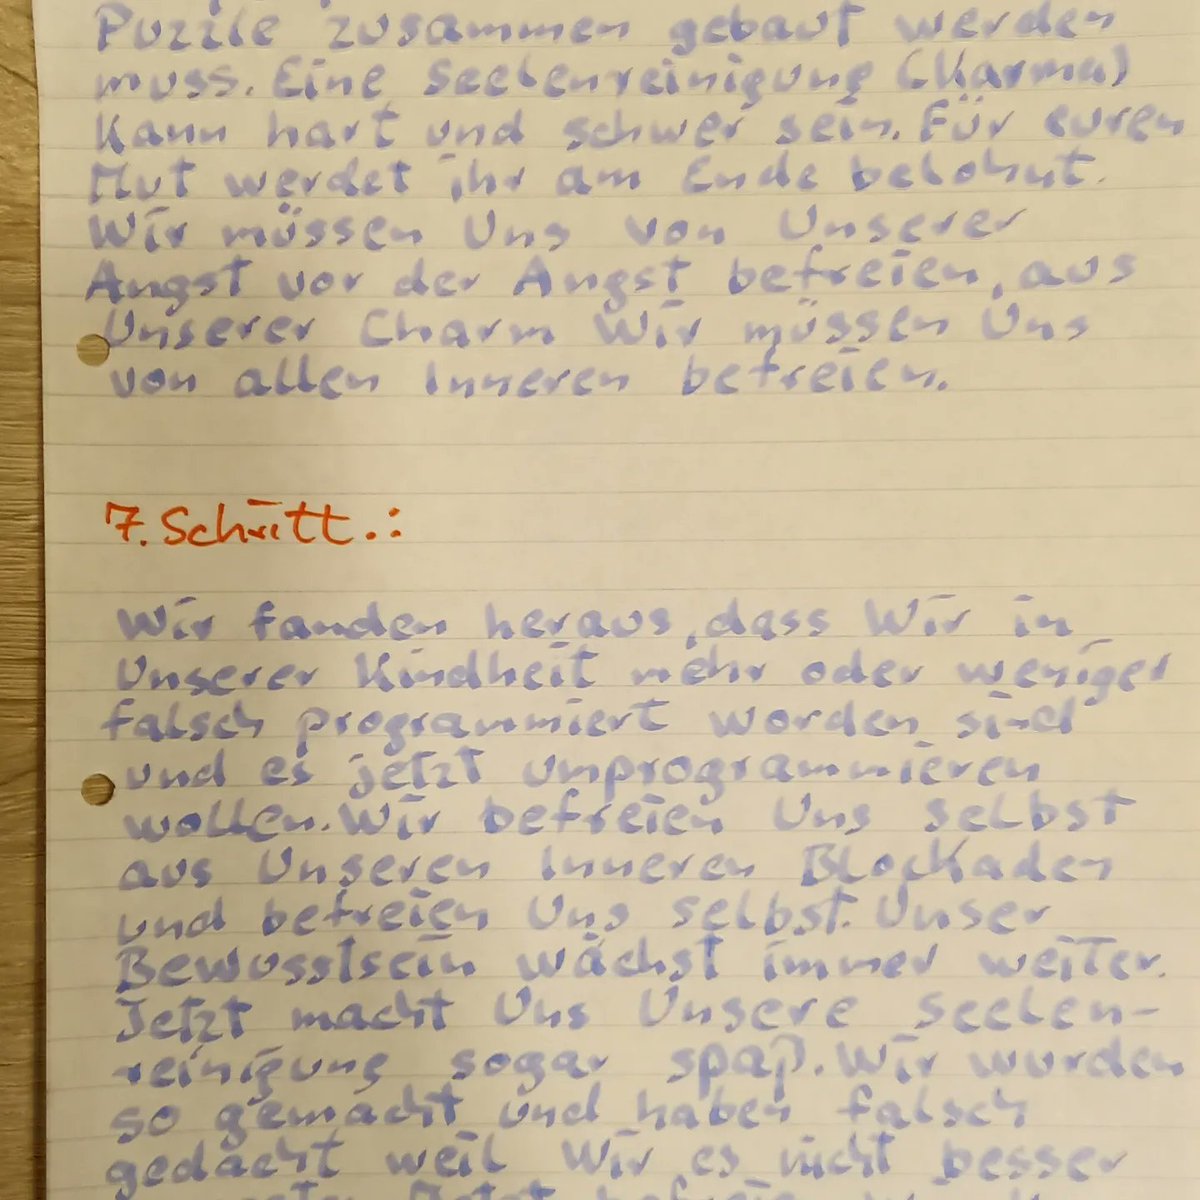 Puzzle zusammen gebaut werden
muss. Eine Seelenreinigung (Karma)
Kann hart und schwer sein. Für euren
Mut werdet ihr am Ende belohnt.
Wir müssen Uns von Unserer
Angst vor der Angst befreien, aus
Unserer Charm Wir müssen Uns
von allen Inneren befreien.
7. Schritt.:
Wir fanden heraus, dass Wir in
Unserer Kindheit mehr oder weniger
falsch programmiert worden sind
und es jetzt umprogrammieren
wollen. Wir befreien Uns selbst
aus Unseren Inneren Blockaden
und befreien Uns selbst. Unser
Bewusstsein wächst immer weiter.
Jetzt macht Uns Unsere Seelen-
reinigung sogar spaß. Wir wurden
so gemacht und haben falsch
gedacht weil Wir es nicht besser